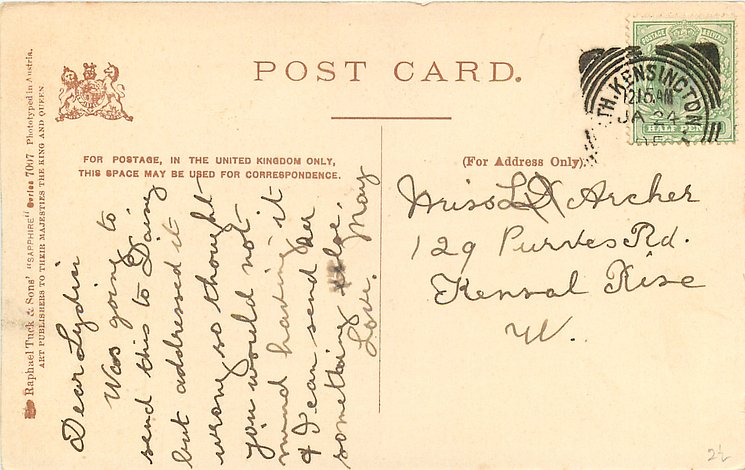 POST CARD.
FOR POSTAGE, IN THE UNITED KINGDOM ONLY,
THIS SPACE MAY BE USED FOR CORRESPONDENCE.
(For Address Only).
Raphael Tuck & Sons' "SAPPHIRE" Series 7067 Phototyped in Austria.
ART PUBLISHERS TO THEIR MAJESTIES THE KING AND QUEEN.
Dear Lydia
Was going to
send this to Daisy
but addressed it
wrong so thought
you would not
mind having it
& I can send her
something else.
Love. May
Miss L Archer
129 Purves Rd.
Kensal Rise
W.
POSTAGE & REVENUE
HALF PENNY
TH. KENSINGTON
12.15 AM
JA 24
05
2½